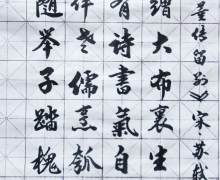 董传留别》宋苏轼
缯大布裹生
有诗書氣自
伴老儒烹瓠
随举子踏槐